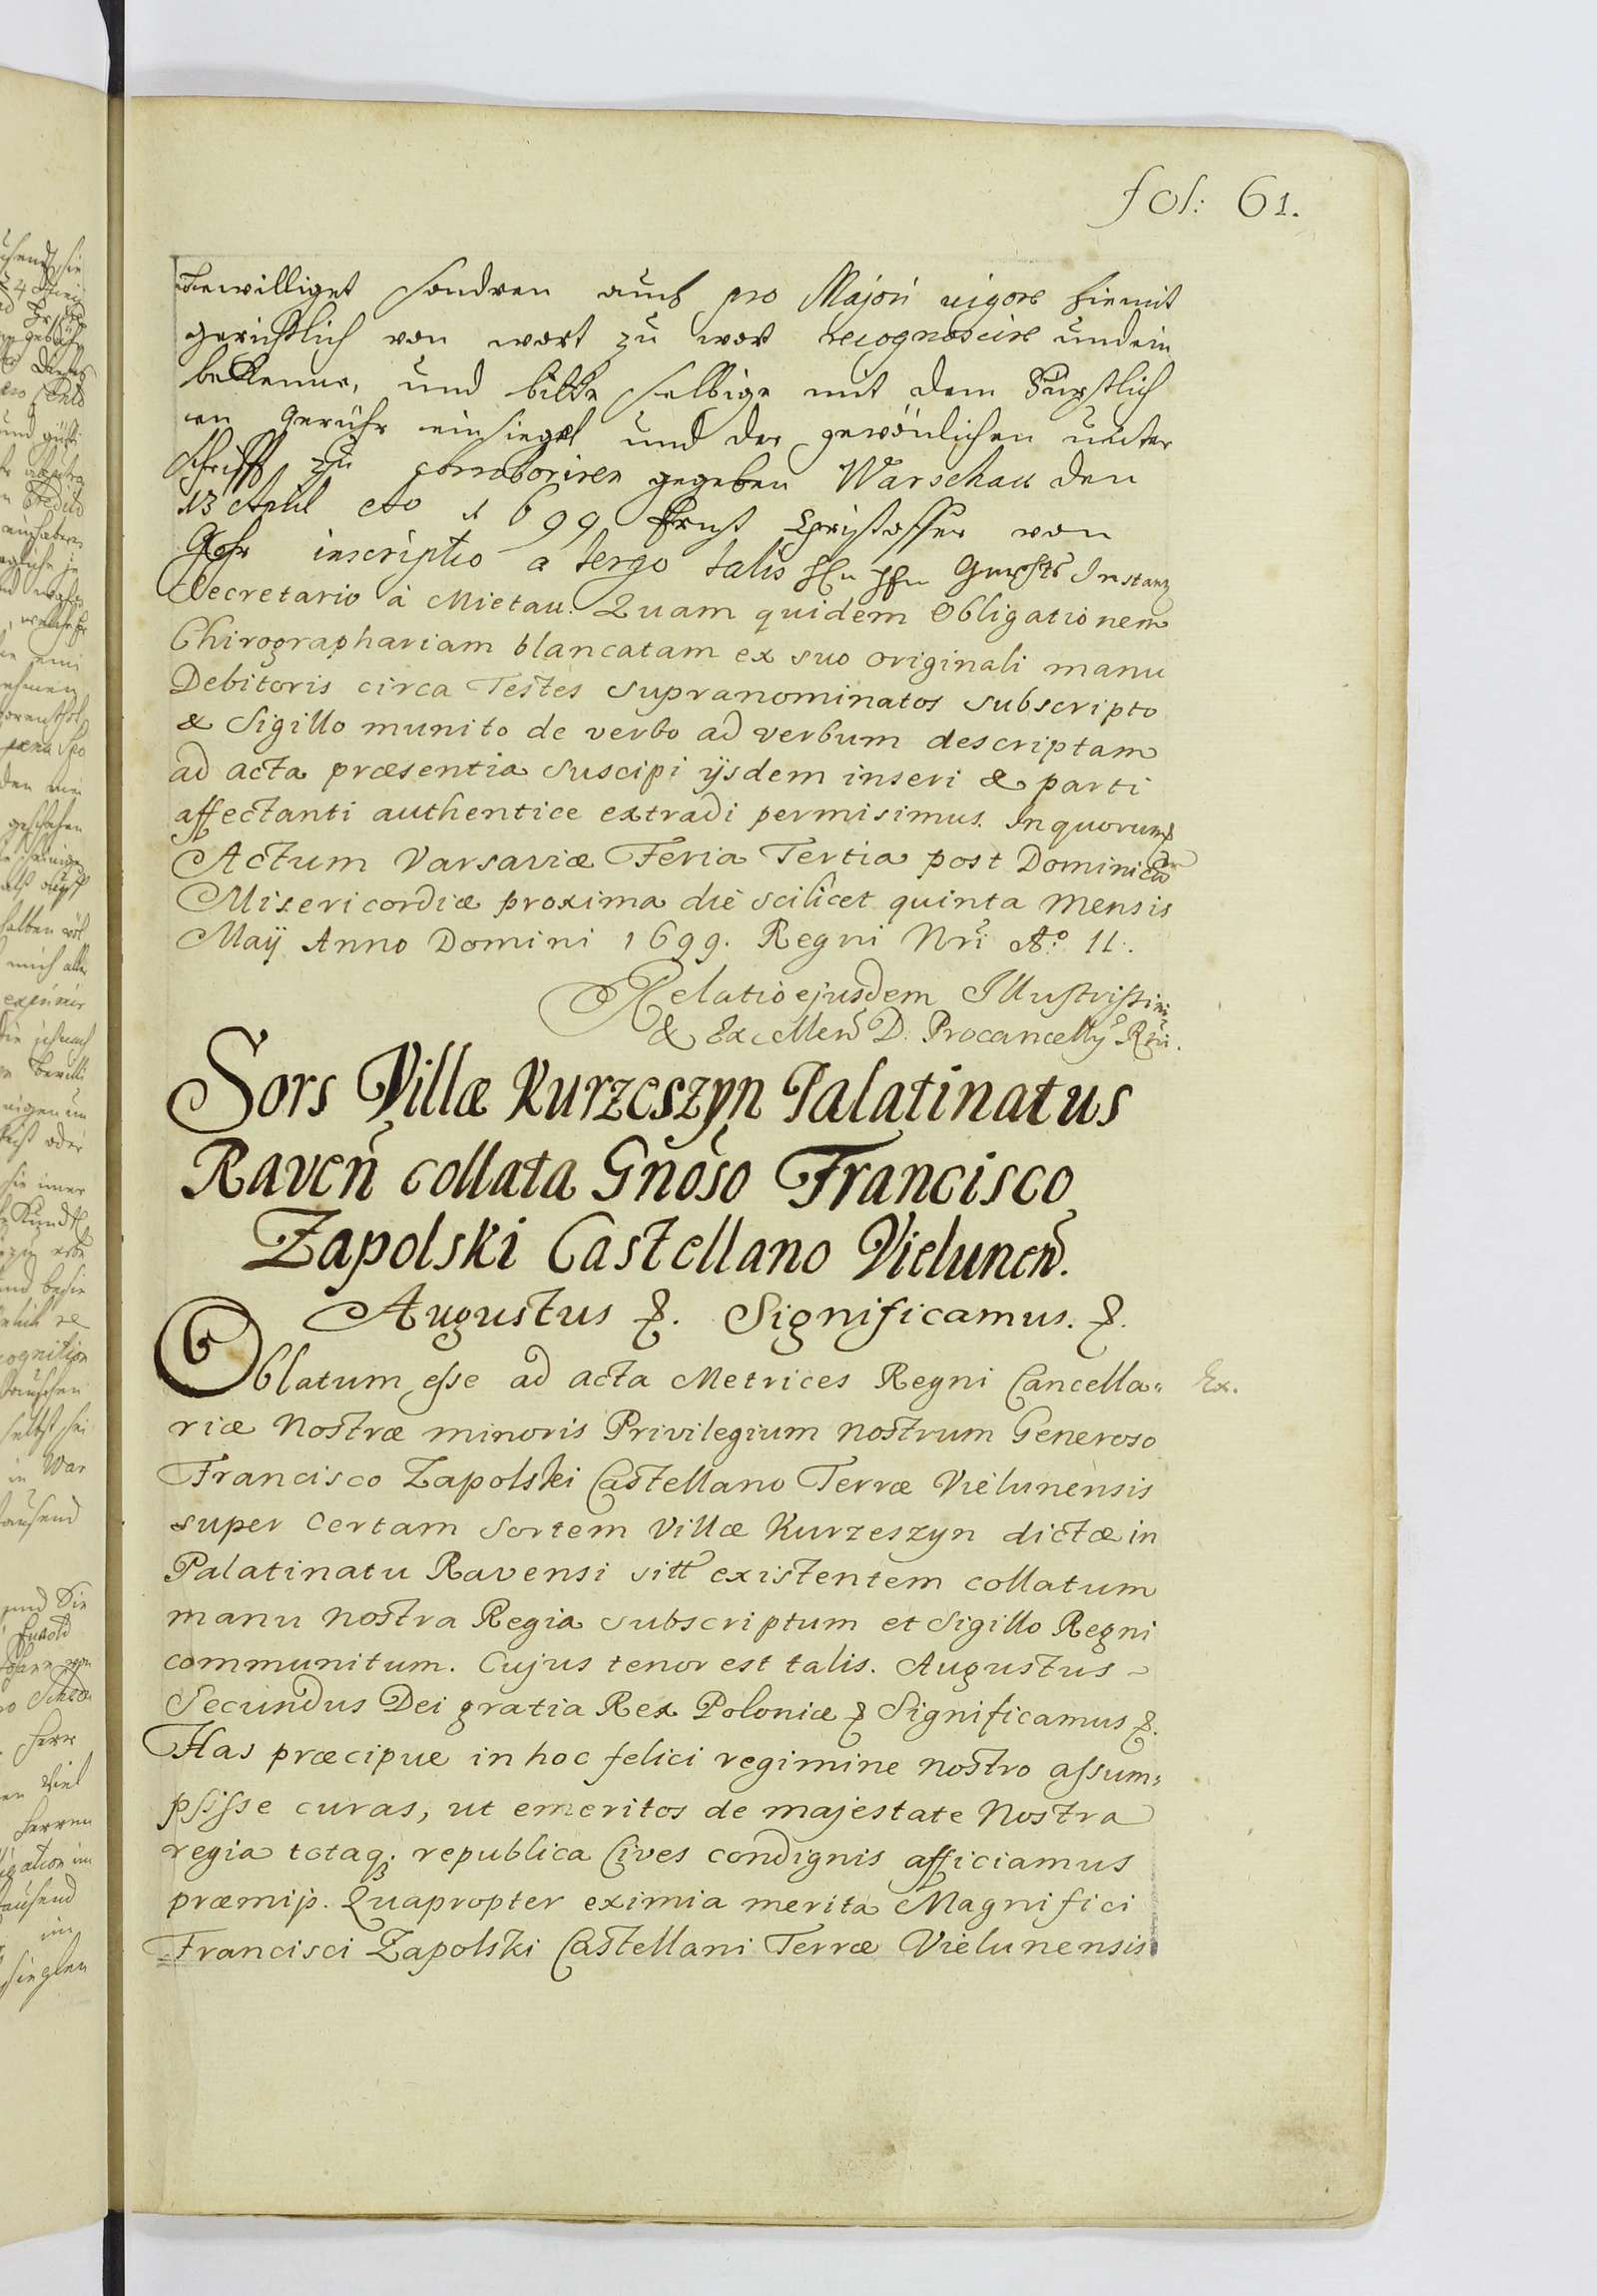 fol: 61.
bewilliget sondren auch pro Majori vigore hiemit
gerichtlich von wort zu wort recognoscire und ein
bekenne, und bitte selbige mit dem Fürstlich
en Gerichts einsiegel und der gewönlichen unter
schrifft zu corroboriren gegeben Warschau den
13 April Ao 1699 Ernst Christoffer von
inscriptio a tergo talis Gerichts Instanz
Secretario à Mietau. Quam quidem Obligationem
Chirographariam blancatam ex suo originali manu
Debitoris circa Testes supranominatos subscripto
& Sigillo munito de verbo ad verbum descriptam
ad acta præsentia suscipi ijsdem inseri & parti
affectanti authentice extradi permisimus. In quorum &
Actum Varsaviæ Feria Tertia post Dominicam
Misericordiæ proxima die scilicet quinta Mensis
Maÿ Anno Domini 1699. Regni Nri Ao. II.
Relatio ejusdem Illustrissimi
& Excellen D. Procancellÿ Rni.
Sors Villæ Kurzeszyn Palatinatus
Raven collata Gnoso Francisco
Zapolski Castellano Vielunen.
Augustus &. Significamus. &.
Oblatum esse ad acta Metrices Regni Cancella= Ex.
riæ Nostræ minoris Privilegium nostrum Generoso
Francisco Zapolski Castellano Terræ Vielunensis
super certam sortem Villæ Kurzeszyn dictæ in
Palatinatu Ravensi sitt existentem collatum
manu nostra Regia subscriptum et Sigillo Regni
communitum. Cujus tenor est talis. Augustus
Secundus Dei gratia Rex Poloniæ & Significamus &.
Has præcipue in hoc felici regimine nostro assum=
psisse curas, ut emeritos de majestate Nostra
regia totaq; republica Cives condignis afficiamus
præmijs. Quapropter eximia merita Magnifici
Francisci Zapolski Castellani Terræ Vielunensis